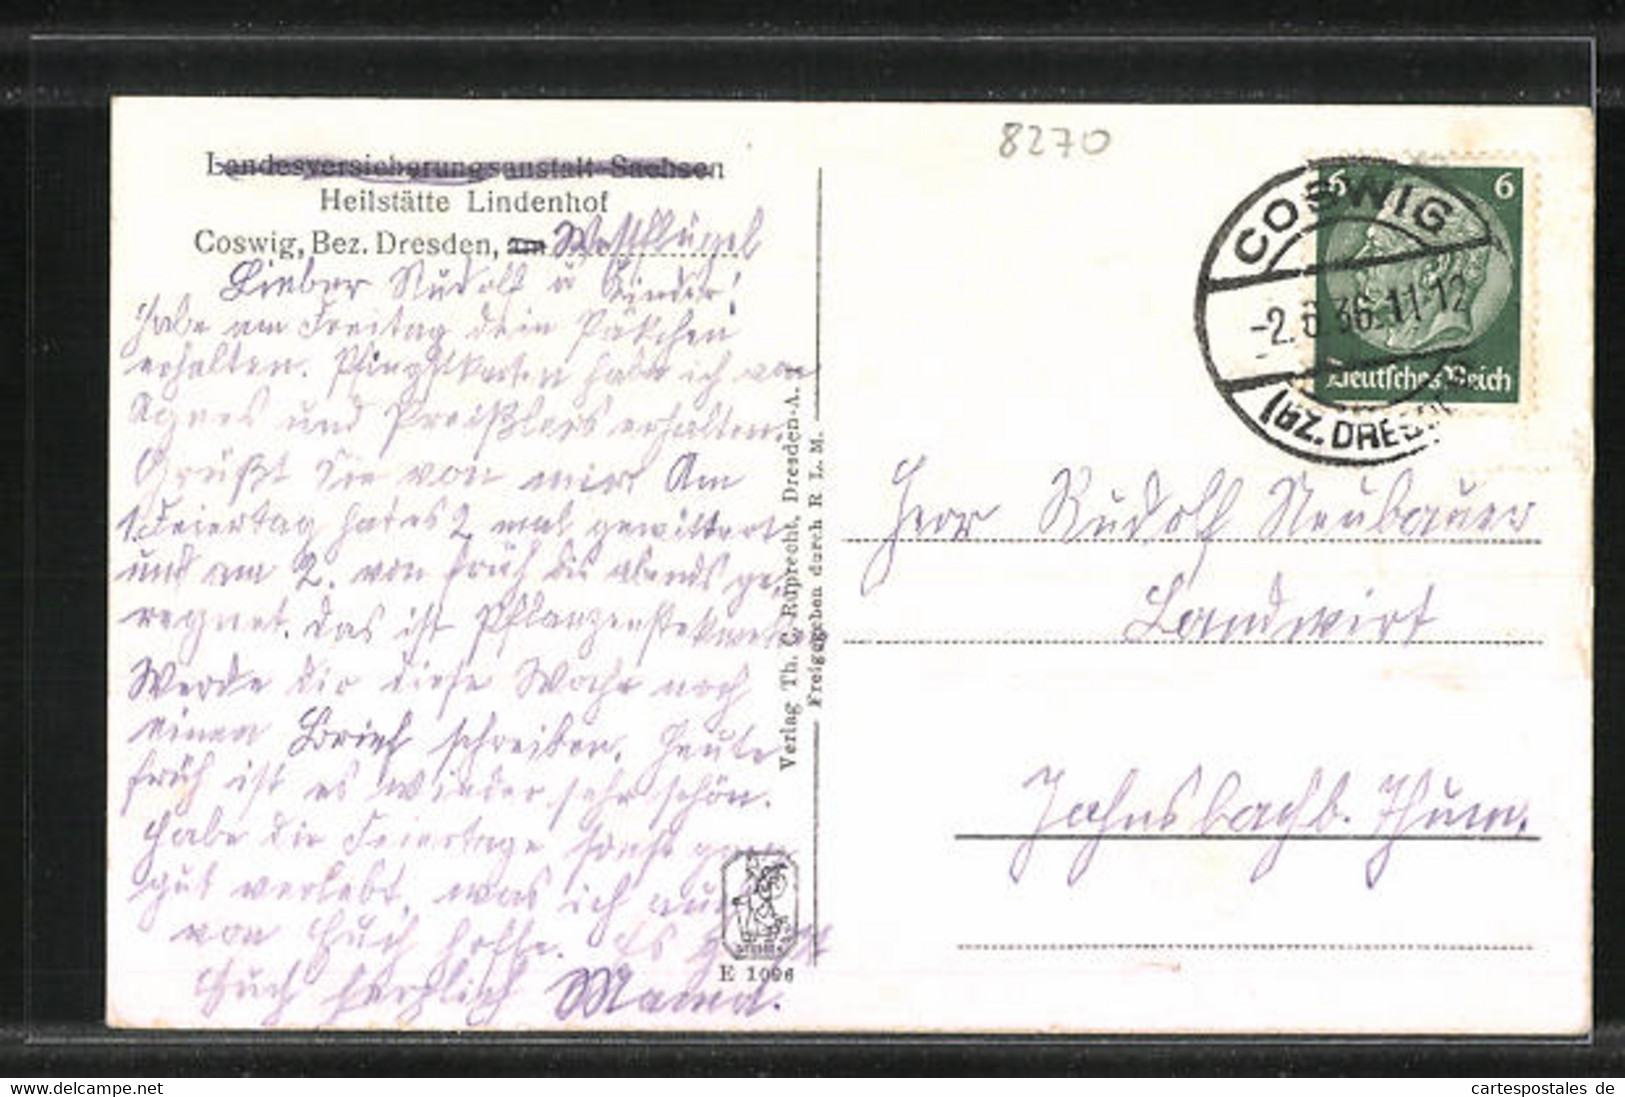 8270
Landesversicherungsanstalt Sachsen
Heilstätte Lindenhof
Coswig, Bez. Dresden, am Westflügel
Lieber Rudolf u Kinder!
Habe am Freitag dein Päkchen
erhalten. Pfingstkarten habe ich von
Agnes und Preißlers erhalten.
Grüßt Sie von mir. Am
1. Feiertag hat es 2 mal gewittert
und am 2. von früh bis abends ge-
regnet. Das ist
Werde dir diese Woche noch
einen Brief schreiben. Heute
früh ist es wieder sehr schön.
Habe die Feiertage sonst ganz
gut verlebt, was ich auch
von Euch hoffe. Es grüßt
Euch herzlich Mama.
Verlag Th. G. Ruprecht, Dresden-A.
Freigegeben durch R L. M.
E 1096
COSWIG
-2.6.36.11-12
(BZ. DRESD
6 6
Deutsches Reich
Herr Rudolf Neubauer
Landwirt
Jahnsbach b. Thum.
www.cartespostales.eu
cartespostales de